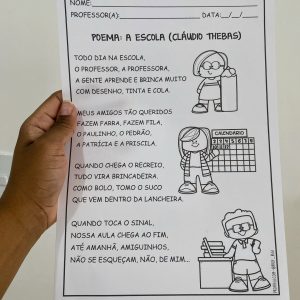 NOME:
PROFESSOR(A): DATA: __/__/__
POEMA: A ESCOLA (CLÁUDIO THEBAS)
TODO DIA NA ESCOLA,
O PROFESSOR, A PROFESSORA,
A GENTE APRENDE E BRINCA MUITO
COM DESENHO, TINTA E COLA.
MEUS AMIGOS TÃO QUERIDOS
FAZEM FARRA, FAZEM FILA,
O PAULINHO, O PEDRÃO,
A PATRÍCIA E A PRISCILA.
CALENDÁRIO
QUANDO CHEGA O RECREIO,
TUDO VIRA BRINCADEIRA.
COMO BOLO, TOMO O SUCO
QUE VEM DENTRO DA LANCHEIRA.
QUANDO TOCA O SINAL,
NOSSA AULA CHEGA AO FIM,
ATÉ AMANHÃ, AMIGUINHOS,
NÃO SE ESQUEÇAM, NÃO, DE MIM...